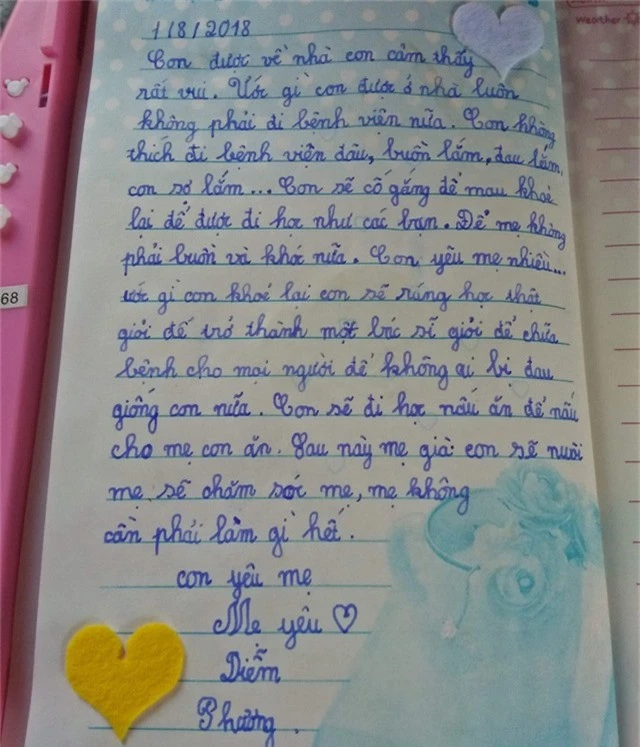 1/8/2018
Weather
Con được về nhà con cảm thấy
rất vui. Ước gì con được ở nhà luôn
không phải đi bệnh viện nữa. Con không
thích đi bệnh viện đâu, buồn lắm, đau lắm,
con sợ lắm... Con sẽ cố gắng để mau khoẻ
lại để được đi học như các bạn. Để mẹ không
phải buồn và khóc nữa. Con yêu mẹ nhiều...
ước gì con khoẻ lại con sẽ ráng học thật
giỏi để trở thành một bác sĩ giỏi để chữa
bệnh cho mọi người để không ai bị đau
giống con nữa. Con sẽ đi học nấu ăn để nấu
cho mẹ con ăn. Sau này mẹ già con sẽ nuôi
mẹ sẽ chăm sóc mẹ, mẹ không
cần phải làm gì hết.
con yêu mẹ
Mẹ yêu ♡
Diễm
Phương.
68